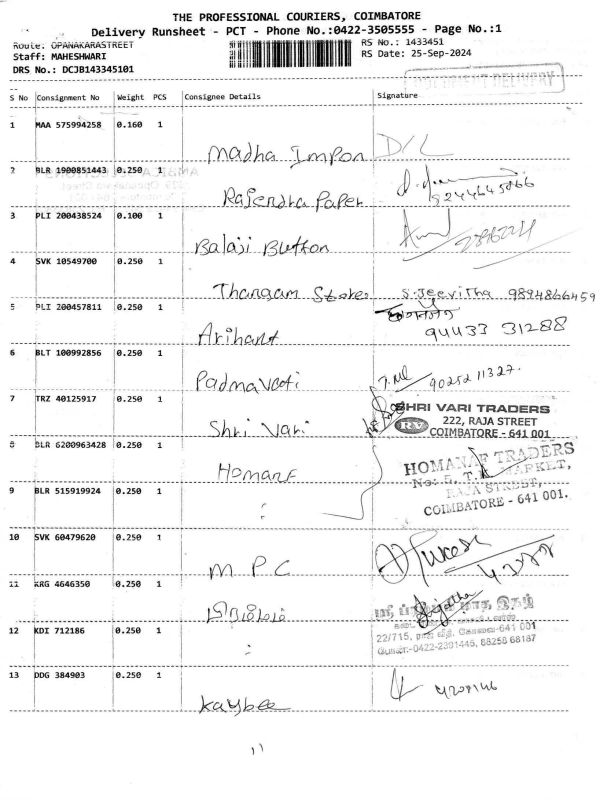 THE PROFESSIONAL COURIERS, COIMBATORE
Delivery Runsheet - PCT - Phone No.:0422-3505555 - Page No.:1
Route: OPANAKARASTREET
RS No.: 1433451
Staff: MAHESHWARI
RS Date: 25-Sep-2024
DRS No.: DCJB143345101
S No Consignment No Weight PCS Consignee Details Signature
1 MAA 575994258 0.160 1 Madha Impon D/L
2 BLR 1900851443 0.250 1 Rajendra Paper
3 PLI 200438524 0.100 1 Balaji Button
4 SVK 10549700 0.250 1 Thangam Stores S.Jeevitha 9894866459
5 PLI 200457811 0.250 1 Arihant 94433 31288
6 BLT 100992856 0.250 1 Padmavati 90252 11327.
7 TRZ 40125917 0.250 1 Shri Vari
SHRI VARI TRADERS
RV 222, RAJA STREET
COIMBATORE - 641 001
8 BLR 6200963428 0.250 1 Homans
HOMANAF TRADERS
No: 5, T.K. MARKET,
RAJA STREET,
COIMBATORE - 641 001.
9 BLR 515919924 0.250 1 :
10 SVK 60479620 0.250 1 M P C
11 KRG 4646350 0.250 1
12 KDI 712186 0.250 1 :
22/715, ராஜ வீதி, கோவை-641 001
போன்:-0422-2391446, 88258 68187
13 DDG 384903 0.250 1 Kaybee
11